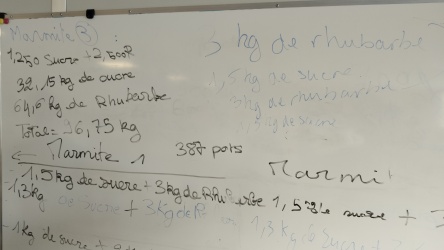 Marmite(3) :
1,250 Sucre + 2,500R
32,15 kg de sucre
64,6 kg de Rhubarbe
Total = 96,75 kg
3 kg de rhubarbe
1,5 kg de sucre
3 kg de rhubarbe
kg de sucre
← Marmite 1
387 pots
Marmit
1,5 kg de sucre + 3 kg de Rhubarbe
1,5 de sucre +
1,3 kg de Sucre + 3 kg de R
1,3 kg
1 Kg de sucre +